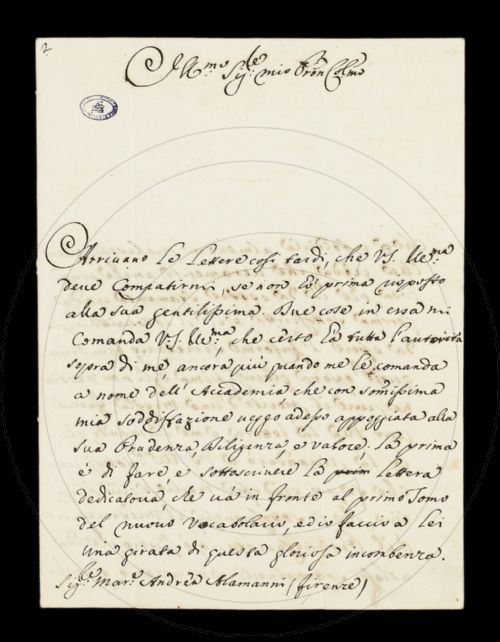 2
Ill.mo Sig.re mio Pron Colmo
Arrivano le lettere così tardi, che VS. Ill.ma
deve Compatirmi, se non hò prima risposto
alla sua gentilissima. Due cose in essa mi
Comanda VS. Ill.ma, che certo hà tutta l'autorità
sopra di me, ancora più quando me le comanda
a nome dell'Accademia, che con somissima
mia soddisfazione veggo adesso appoggiata alla
sua Prudenza, Diligenza, e valore. La prima
è di fare, e sottoscrivere la lettera
dedicatoria, che và in fronte al primo Tomo
del nuovo Vocabolario, ed io faccio a lei
una girata di questa gloriosa incombenza.
Sig.re Mar.e Andrea Alamanni (Firenze)